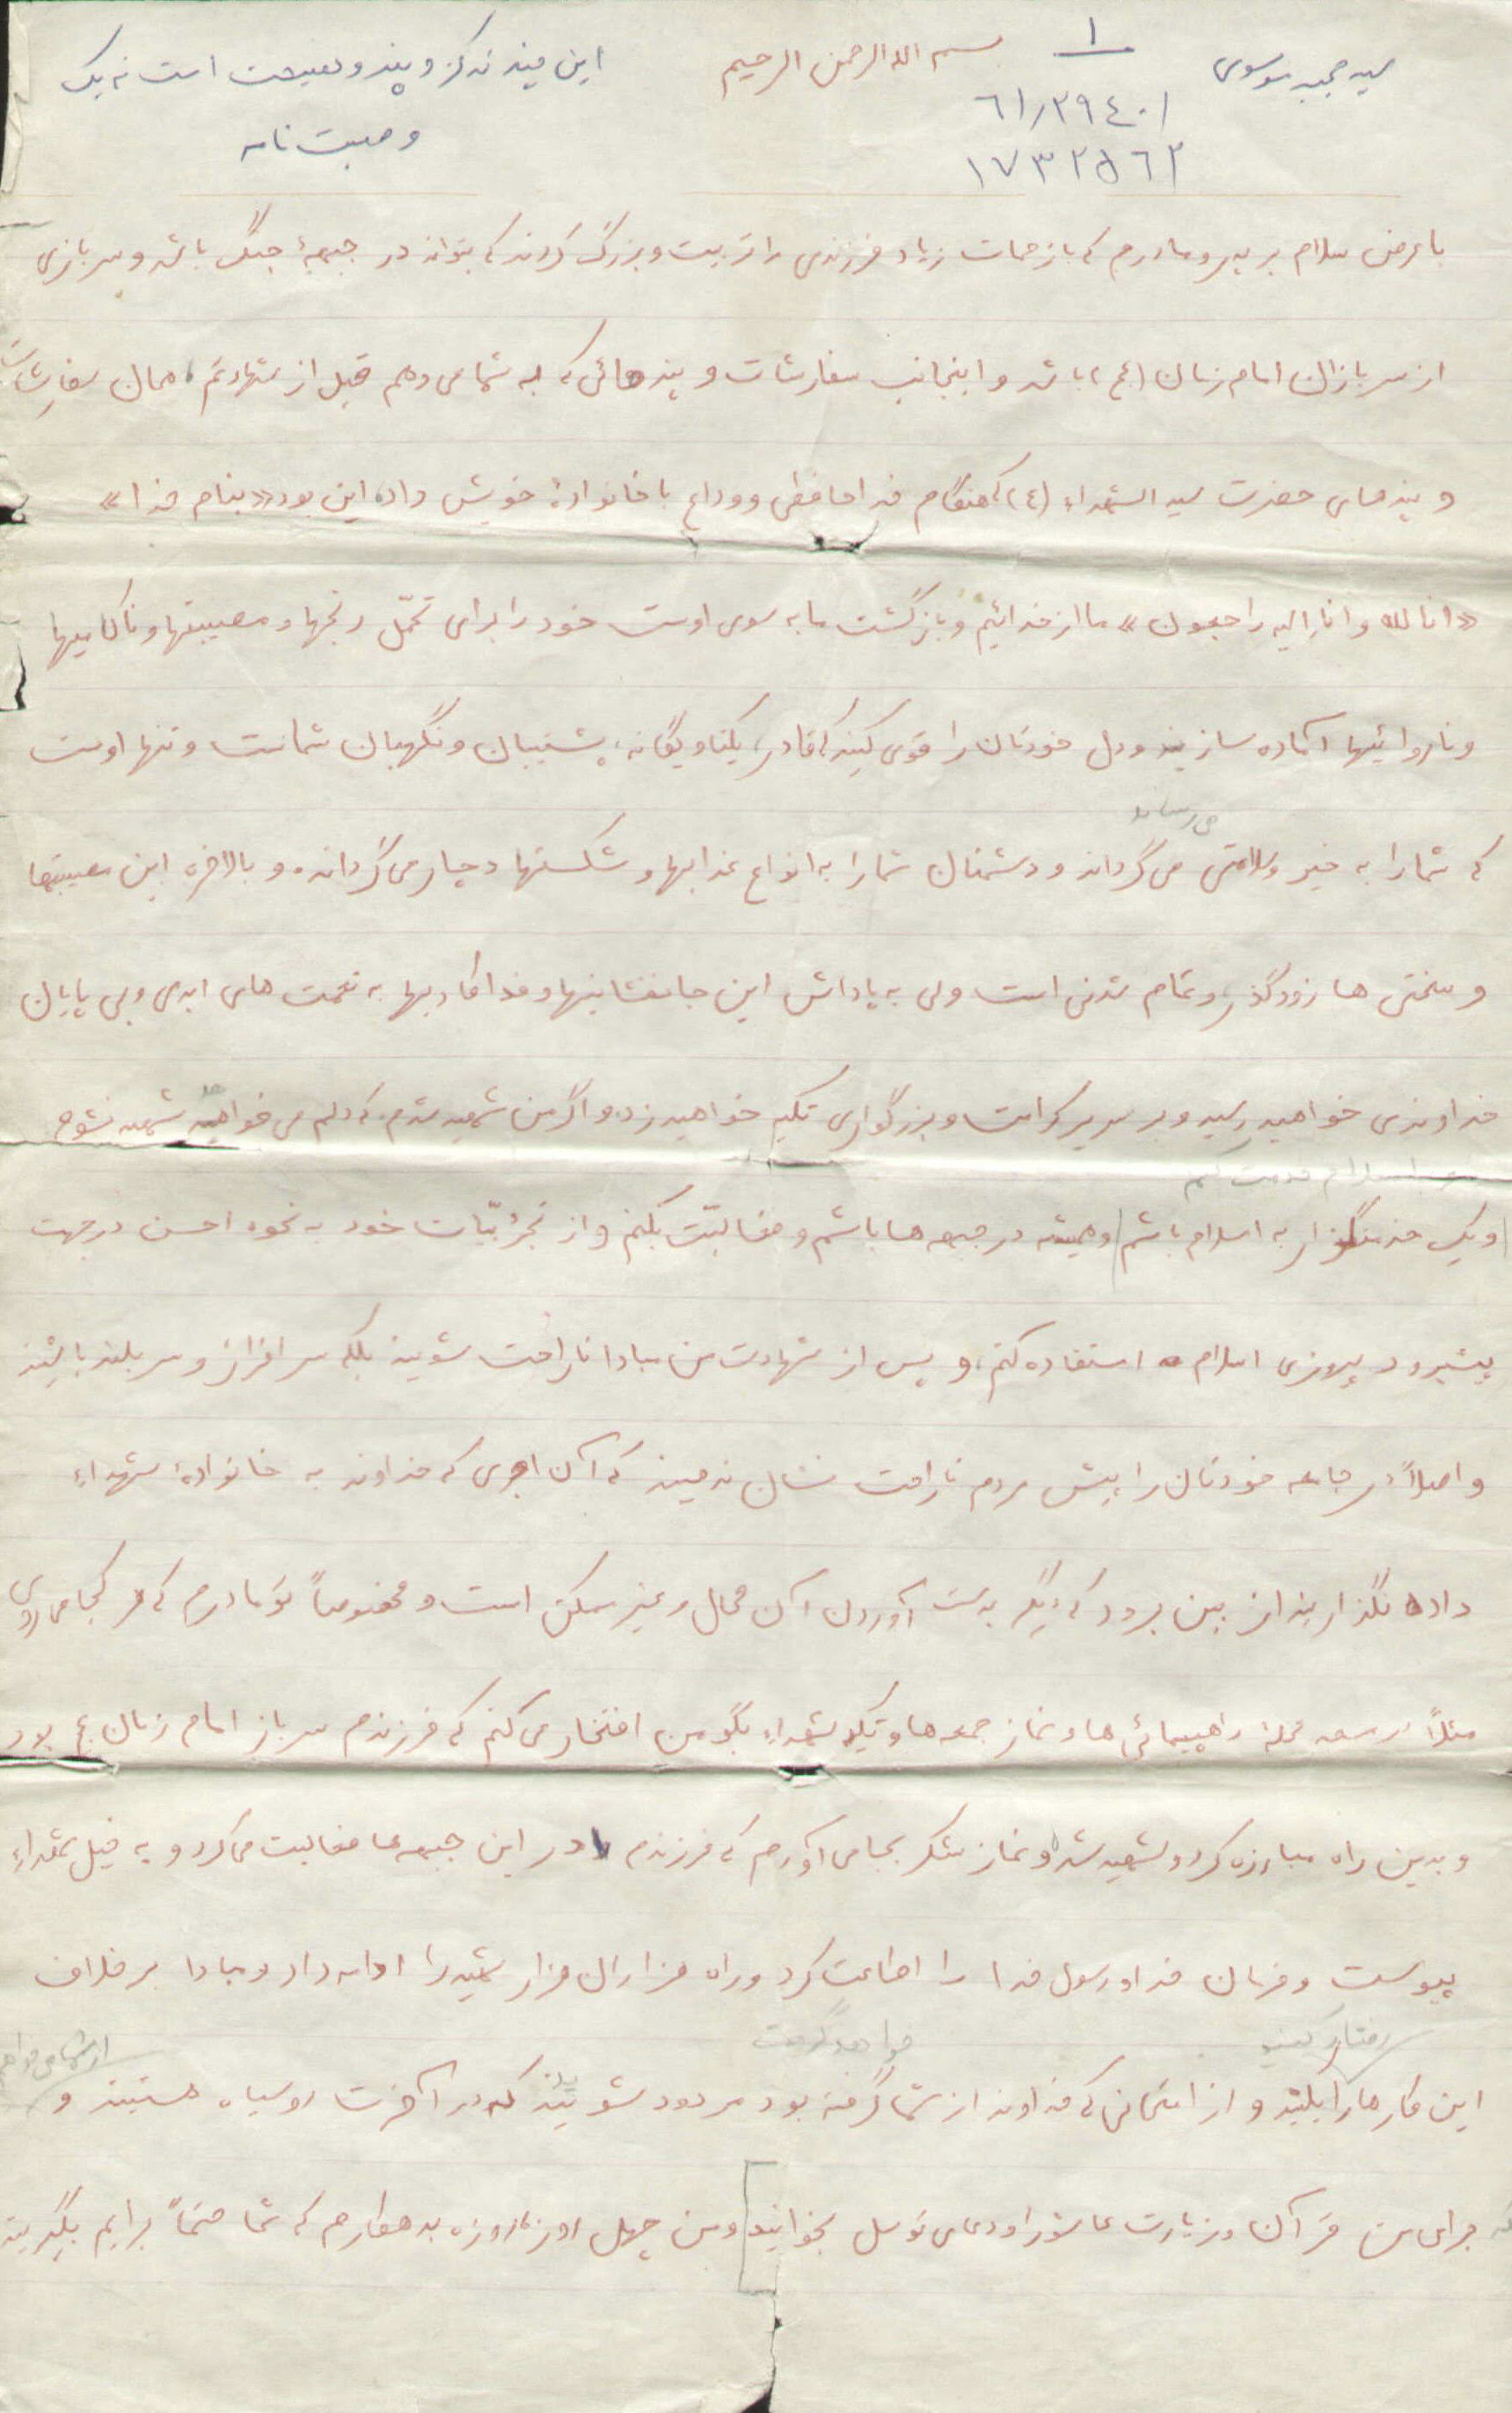 سید مجید موسوی
۱
بسم الله الرحمن الرحیم
این چند تذکر و پند و نصیحت است نه یک
وصیت نامه
۶۱/۲۹۴۰۱
۱۷۳۲۵۶۲
با عرض سلام بر پدر و مادرم که با زحمات زیاد فرزندی را تربیت و بزرگ کردند که بتواند در جبههٔ جنگ باشد و سربازی
از سربازان امام زمان (عج) باشد و اینجانب سفارشات و پندهائی که به شما می دهم قبل از شهادتم، همان سفارشات
و پندهای حضرت سید الشهداء (ع) که هنگام خداحافظی و وداع با خانوادهٔ خویش داد، این بود «بنام خدا»
«انا لله و انا الیه راجعون» ما از خدائیم و بازگشت ما به سوی اوست خود را برای تحمّل رنجها و مصیبتها و ناکامیها
و ناروائیها آماده سازید و دل خودتان را قوی کنید که قادر یکتا و یگانه، پشتیبان و نگهبان شماست و تنها اوست
می رساند
که شما را به خیر و سلامتی می گرداند و دشمنان شما را به انواع عذابها و شکستها دچار می گرداند، و بالاخره این مصیبتها
و سختی ها زودگذر و تمام شدنی است ولی به پاداش این جانفشانیها و فداکاریها به نعمت های ابدی و بی پایان
خداوندی خواهید رسید و بر سریر کرامت و بزرگواری تکیه خواهید زد، و اگر من شهید شدم، که دلم می خواهد شهید نشوم
اسلام خدمت کنم
و یک خدمتگزار به اسلام باشم و همیشه در جبهه ها باشم و فعالیّت بکنم و از تجربیّات خود به نحوه احسن در جهت
پیشبرد و پیروزی اسلام استفاده کنم، و پس از شهادت من مبادا ناراحت شوید بلکه سرافراز و سربلند باشید
و اصلاً در جامعه خودتان را پیش مردم ناراحت نشان ندهید که آن اجری که خداوند به خانوادهٔ شهداء
داده نگذارید از بین برود که دیگر بدست آوردن آن محال و غیر ممکن است و مخصوصاً تو مادرم که هر کجا می روی
مثلاً راهپیمائی ها و نماز جمعه ها و شهداء بگو من افتخار می کنم که فرزندم سرباز امام زمان عج بود
و بدین راه مبارزه کرد و شهید شد و نماز شکر بجا می آورم که فرزندم در این جبهه ها فعالیت می کرد و به خیل شهداء
پیوست و فرمان خدا و رسول خدا را اطاعت کرد و راه هزاران هزار شهید را ادامه داد و مبادا بر خلاف
رفتار کنید خواهد گرفت از شما می خواهم
این کارها را بکنید و از امتحانی که خداوند از شما گرفته بود مردود شوید که در آخرت روسیاه هستید و
که برای من قرآن و زیارت عاشورا و دعای توسل بخوانید و من چهل روز روزه بدهکارم که شما حتماً برایم بگیرید